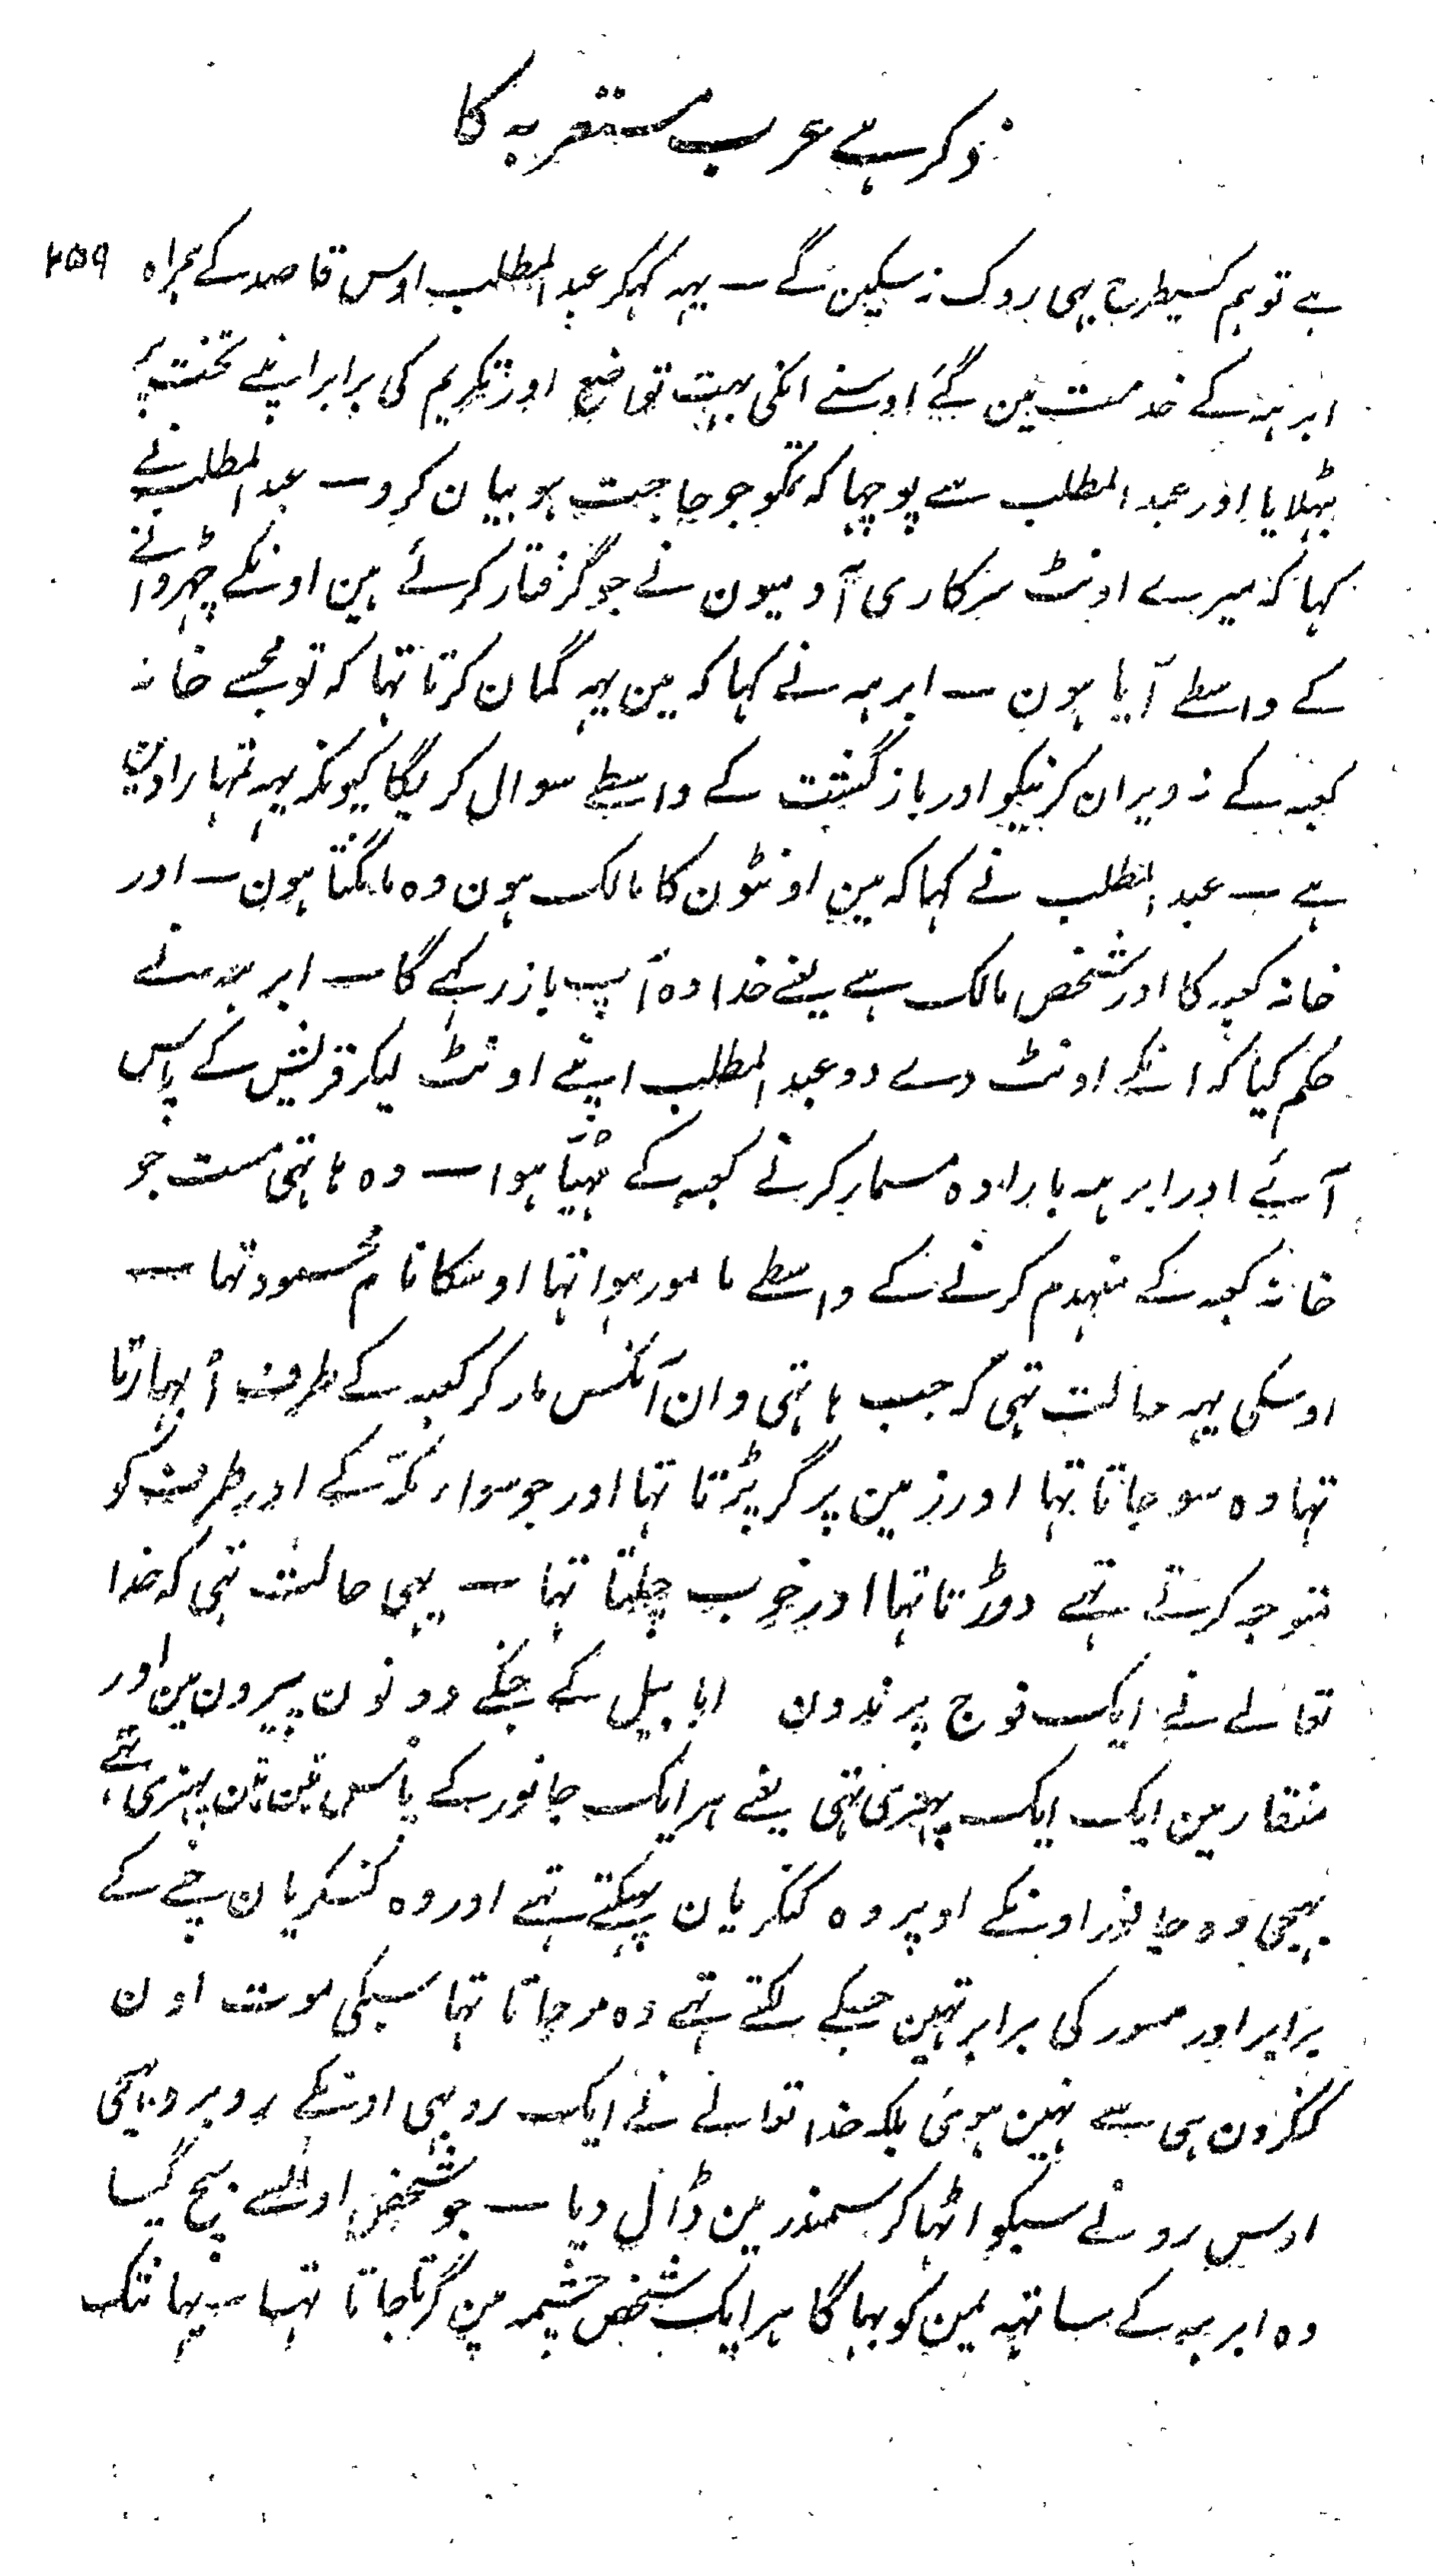 ذکر ہے عرب مستعربہ کا
۲۵۹
ہے تو ہم کسیطرح بہی روک نہ سکین گے ــ یہہ کہکر عبد المطلب اوس قاصد کے ہمراہ
ابرہہ کے خدمت مین گئے اوسنے انکی بہت تواضع اور تکریم کی برابر اپنے تخت پر
بٹہلایا اور عبد المطلب سے پوچہا کہ تمکو جو حاجت ہو بیان کرو ــ عبد المطلب نے
کہا کہ میرے اونٹ سرکاری آدمیون نے جو گرفتار کرلئے ہین اونکے چہڑوانے
کے واسطے آیا ہون ــ ابرہہ نے کہا کہ مین یہہ گمان کرتا تہا کہ تو مجہسے خانہ
کعبہ کے نہ ویران کرنیکو اور بازگشت کے واسطے سوال کریگا کیونکہ یہہ تمہارا دین
ہے ــ عبد المطلب نے کہا کہ مین اونٹون کا مالک ہون وہ مانگتا ہون ــ اور
خانہ کعبہ کا اور شخص مالک ہے یعنے خدا وہ آپ باز رکہے گا ــ ابرہہ نے
حکم کیا کہ انکے اونٹ دے دو عبد المطلب اپنے اونٹ لیکر قریش کے پاس
آئے اور ابرہہ بارادہ مسمار کرنے کعبہ کے مہیّا ہوا ــ وہ ہاتہی مست جو
خانہ کعبہ کے منہدم کرنے کے واسطے مامور ہوا تہا اوسکا نام محمود تہا ــ
اوسکی یہہ حالت تہی کہ جب ہاتہی وان آنکس مار کر کعبہ کے طرف اُبہارتا
تہا وہ سو جاتا تہا اور زمین پر گر پڑتا تہا اور جو سواء مکّہ کے اور طرف کو
متوجہ کرتے تہے دوڑتا تہا اور خوب چلتا تہا ــ یہی حالت تہی کہ خدا
تعالے نے ایک فوج پرندون ابابیل کے جنکے دونون پیرون مین اور
منقار مین ایک ایک پہتری تہی یعنے ہر ایک جانور کے پاس تین تین پہتری تہے
بہیجی وہ جانور اونکے اوپر وہ کنکریان پہیکتے تہے اور وہ کنکریان چنے کے
برابر اور مسور کی برابر تہین جسکے لگتے تہے وہ مر جاتا تہا سبکی موت اون
کنکرون ہی سے نہین ہوئی بلکہ خدا تعالے نے ایک رو بہی اونکے روبرو بہیجی
اوس رو نے سبکو اٹہا کر سمندر مین ڈال دیا ــ جو شخص اونسے بچ گیا
وہ ابرہہ کے ساتہہ یمن کو بہاگا ہر ایک شخص چشمہ مین گرتا جاتا تہا یہانتک